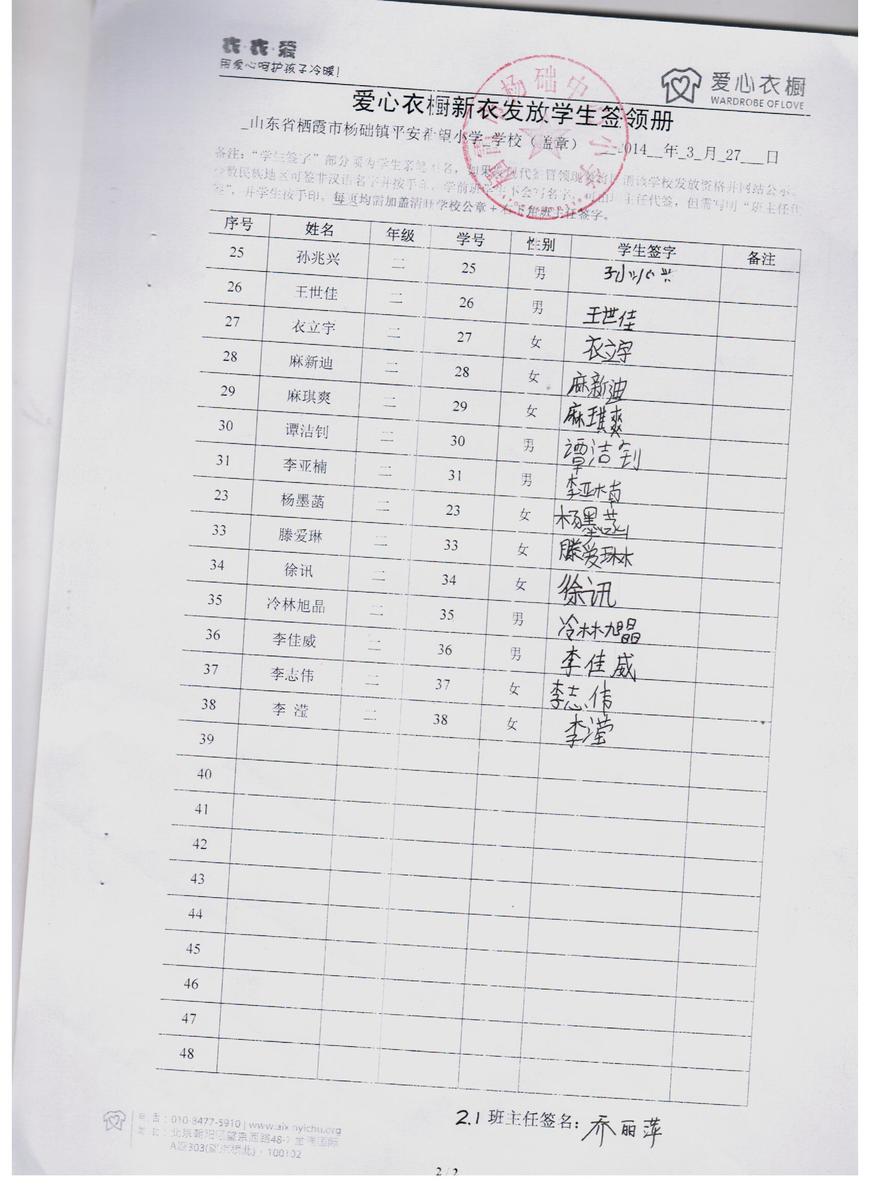 衣·衣·爱
用爱心呵护孩子冷暖!
爱心衣橱
WARDROBE OF LOVE
爱心衣橱新衣发放学生签领册
_山东省栖霞市杨础镇平安希望小学_学校（盖章） 2014__年_3_月_27___日
备注：“学生签字”部分须为学生亲笔签名，如果
少数民族地区可签非汉语名字并按手印，学前班学生不会写名字，可由班主任代签，但需写明“班主任代
签”，并学生按手印，每页均需加盖清晰学校公章+右下角班主任签字。
序号 姓名 年级 学号 性别 学生签字 备注
25 孙兆兴 二 25 男 孙兆兴
26 王世佳 二 26 男 王世佳
27 衣立宇 二 27 女 衣立宇
28 麻新迪 二 28 女 麻新迪
29 麻琪爽 二 29 女 麻琪爽
30 谭洁钊 二 30 男 谭洁钊
31 李亚楠 二 31 男 李亚楠
23 杨墨菡 二 23 女 杨墨菡
33 滕爱琳 二 33 女 滕爱琳
34 徐讯 二 34 女 徐讯
35 冷林旭晶 二 35 男 冷林旭晶
36 李佳威 二 36 男 李佳威
37 李志伟 二 37 女 李志伟
38 李 滢 二 38 女 李滢
39
40
41
42
43
44
45
46
47
48
2.1 班主任签名: 乔丽萍
电话：010-8477-5910 | www.aixinyichu.org
地址：北京朝阳区望京西路48-
A座303(望京桥北)，100102
2 / 2